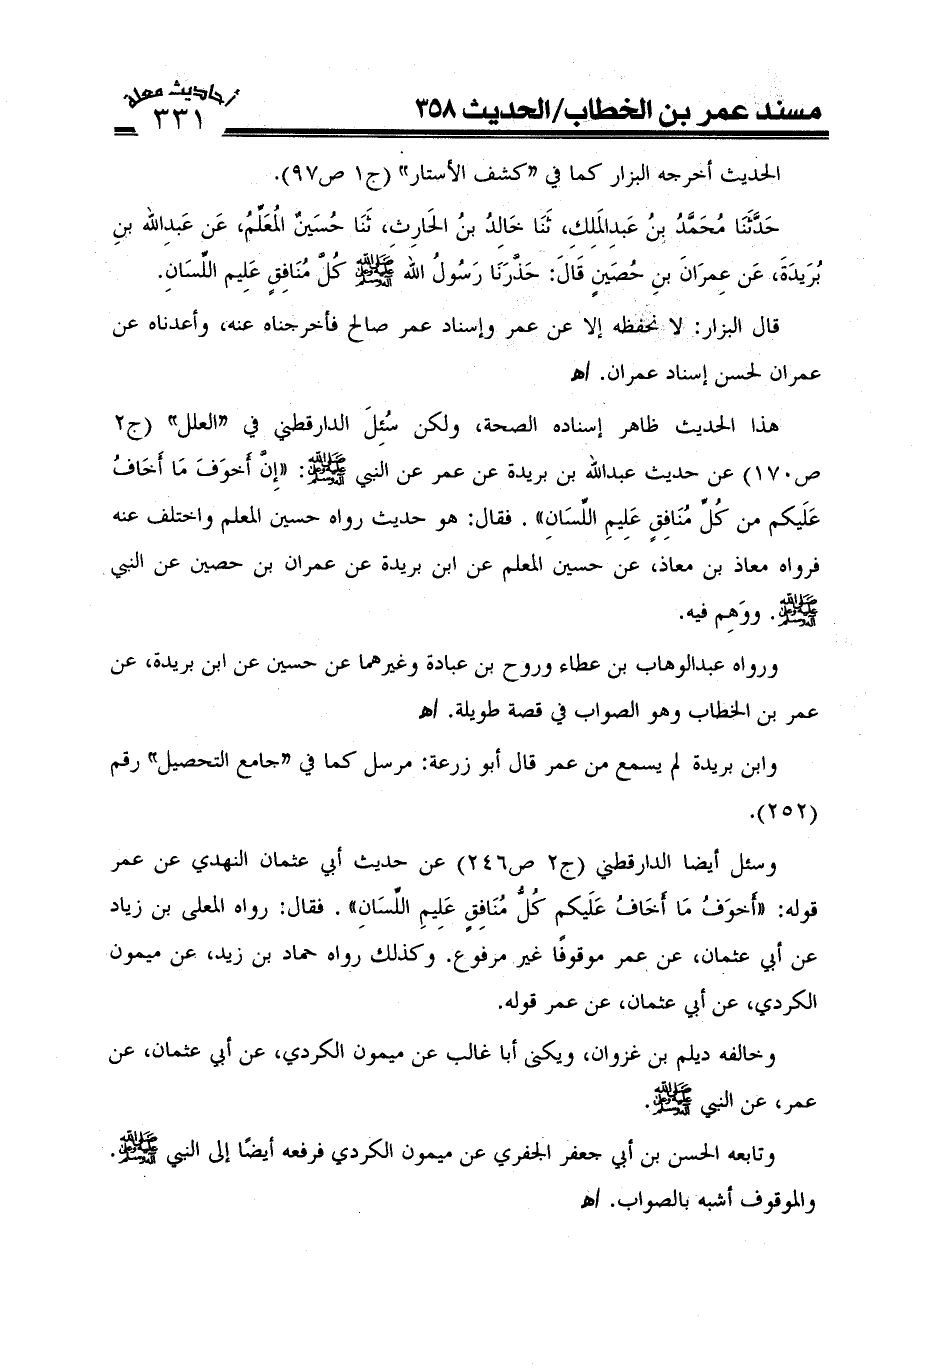 مسند عمر بن الخطاب/الحديث ٣٥٨
أحاديث معلة
٣٣١
الحديث أخرجه البزار كما في «كشف الأستار» (ج١ ص٩٧).
حَدَّثَنَا مُحَمَّدُ بنُ عَبدِالمَلِكِ، ثَنَا خَالِدُ بنُ الحَارِثِ، ثَنَا حُسَينٌ المُعَلِّمُ، عَن عَبدِالله بنِ
بُرَيدَةَ، عَن عِمرَانَ بنِ حُصَينٍ قَالَ: حَذَّرَنَا رَسُولُ الله ﷺ كُلَّ مُنَافِقٍ عَلِيمِ اللِّسَانِ.
قال البزار: لا نحفظه إلا عن عمر وإسناد عمر صالح فأخرجناه عنه، وأعدناه عن
عمران لحسن إسناد عمران. اﻫ
هذا الحديث ظاهر إسناده الصحة، ولكن سُئِلَ الدارقطني في «العلل» (ج٢
ص١٧٠) عن حديث عبدالله بن بريدة عن عمر عن النبي ﷺ: «إِنَّ أَخوَفَ مَا أَخَافُ
عَلَيكم من كُلِّ مُنَافِقٍ عَلِيمِ اللِّسَانِ» . فقال: هو حديث رواه حسين المعلم واختلف عنه
فرواه معاذ بن معاذ، عن حسين المعلم عن ابن بريدة عن عمران بن حصين عن النبي
ﷺ. ووَهِم فيه.
ورواه عبدالوهاب بن عطاء وروح بن عبادة وغيرهما عن حسين عن ابن بريدة، عن
عمر بن الخطاب وهو الصواب في قصة طويلة. اﻫ
وابن بريدة لم يسمع من عمر قال أبو زرعة: مرسل كما في «جامع التحصيل» رقم
(٢٥٢).
وسئل أيضا الدارقطني (ج٢ ص٢٤٦) عن حديث أبي عثمان النهدي عن عمر
قوله: «أَخوَفُ مَا أَخَافُ عَلَيكم كُلُّ مُنَافِقٍ عَلِيمِ اللِّسَانِ» . فقال: رواه المعلى بن زياد
عن أبي عثمان، عن عمر موقوفًا غير مرفوع. وكذلك رواه حماد بن زيد، عن ميمون
الكردي، عن أبي عثمان، عن عمر قوله.
وخالفه ديلم بن غزوان، ويكنى أبا غالب عن ميمون الكردي، عن أبي عثمان، عن
عمر، عن النبي ﷺ.
وتابعه الحسن بن أبي جعفر الجفري عن ميمون الكردي فرفعه أيضًا إلى النبي ﷺ.
والموقوف أشبه بالصواب. اﻫ